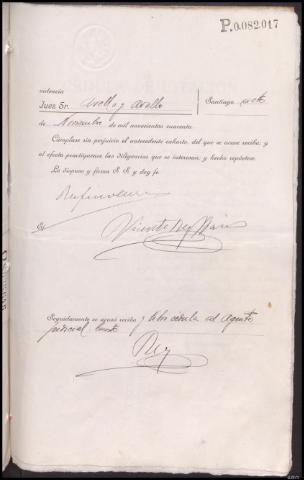 P.0.082.017
Providencia
Juez Sr. Santiago
de Noviembre de mil novecientos cuarenta.
Cúmplase sin perjuicio el antecedente exhorto, del que se acuse recibo; y
al efecto practíquense las diligencias que se interesan, y hecho repórtese.
Lo dispuso y firma S. S. y doy fe.
Vicente Rey
Seguidamente se acusó recibo y al Agente
judicial.
Rey